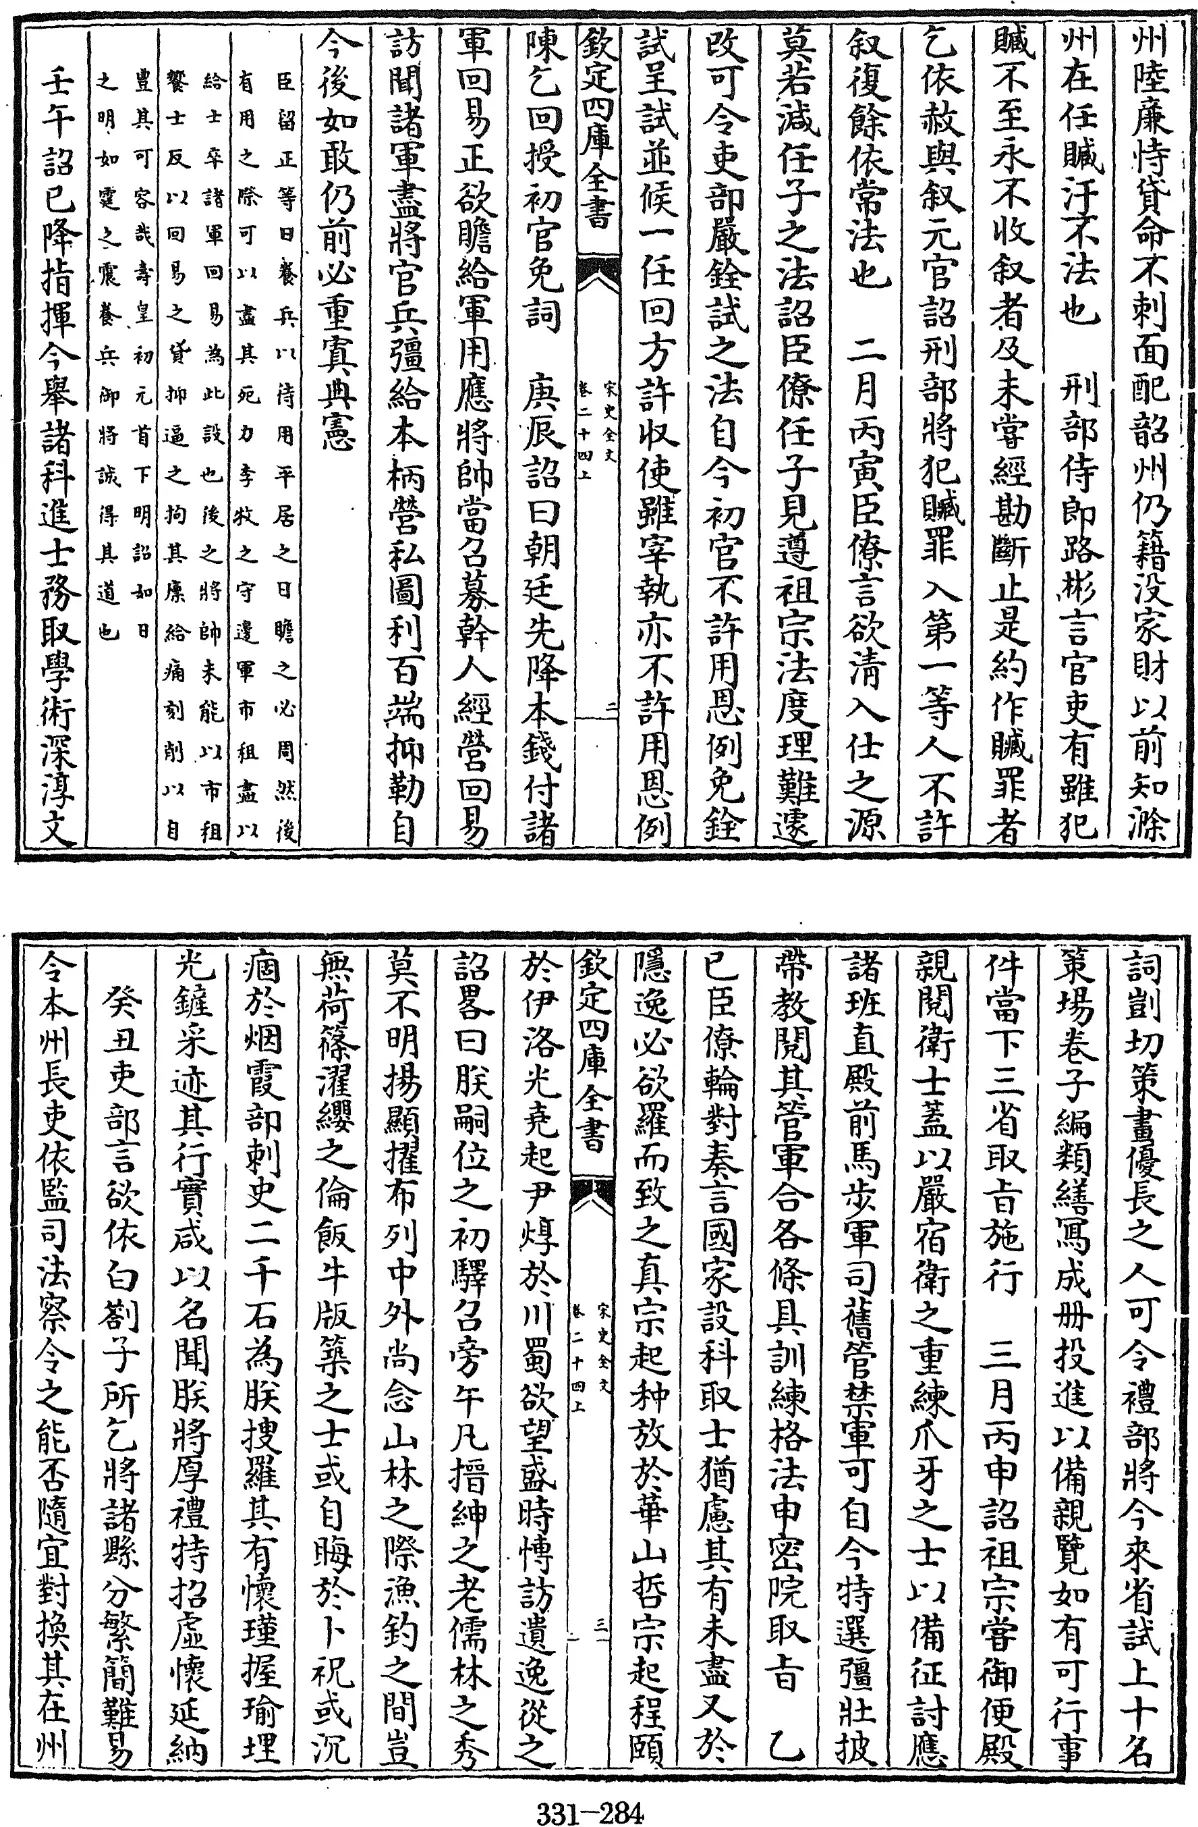 州陸廉恃貸命不刺面配韶州仍籍没家財以前知滁
州在任贓汙不法也　刑部侍郎路彬言官吏有雖犯
贓不至永不收叙者及未嘗經勘斷止是約作贓罪者
乞依赦與叙元官詔刑部將犯贓罪入第一等人不許
叙復餘依常法也　二月丙寅臣僚言欲清入仕之源
莫若減任子之法詔臣僚任子見遵祖宗法度理難遽
改可令吏部嚴銓試之法自今初官不許用恩例免銓
試呈試並候一任回方許収使雖宰執亦不許用恩例
欽定四庫全書
宋史全文
卷二十四上
二
陳乞回授初官免詞　庚辰詔曰朝廷先降本錢付諸
軍回易正欲贍給軍用應將帥當召募幹人經營回易
訪聞諸軍盡將官兵彊給本柄營私圖利百端抑勒自
今後如敢仍前必重寘典憲
臣留正等曰養兵以待用平居之日贍之必周然後
有用之際可以盡其死力李牧之守邊軍市租盡以
給士卒諸軍回易為此設也後之將帥未能以市租
饗士反以回易之貸抑逼之拘其廪給痛刻削以自
豐其可容哉壽皇初元首下明詔如日
之明如霆之震養兵御將誠得其道也
壬午詔已降指揮今舉諸科進士務取學術深淳文
詞剴切策畫優長之人可令禮部將今來省試上十名
策場卷子編類繕寫成册投進以備親覽如有可行事
件當下三省取㫖施行　三月丙申詔祖宗嘗御便殿
親閲衛士蓋以嚴宿衛之重練爪牙之士以備征討應
諸班直殿前馬步軍司舊管禁軍可自今特選彊壯披
帶教閲其管軍合各條具訓練格法申密院取㫖　乙
已臣僚輪對奏言國家設科取士猶慮其有未盡又於
隱逸必欲羅而致之真宗起种放於華山哲宗起程頤
欽定四庫全書
宋史全文
卷二十四上
三
於伊洛光堯起尹焞於川蜀欲望盛時慱訪遺逸從之
詔畧曰朕嗣位之初驛召旁午凡搢紳之老儒林之秀
莫不明揚顯擢布列中外尚念山林之際漁釣之間豈
無荷篠濯纓之倫飯牛版築之士或自晦於卜祝或沉
痼於烟霞部刺史二千石為朕捜羅其有懷瑾握瑜埋
光鏟采迹其行實咸以名聞朕將厚禮特招虛懷延納
癸丑吏部言欲依白劄子所乞將諸縣分繁簡難易
令本州長吏依監司法察令之能否隨宜對換其在州
331-284